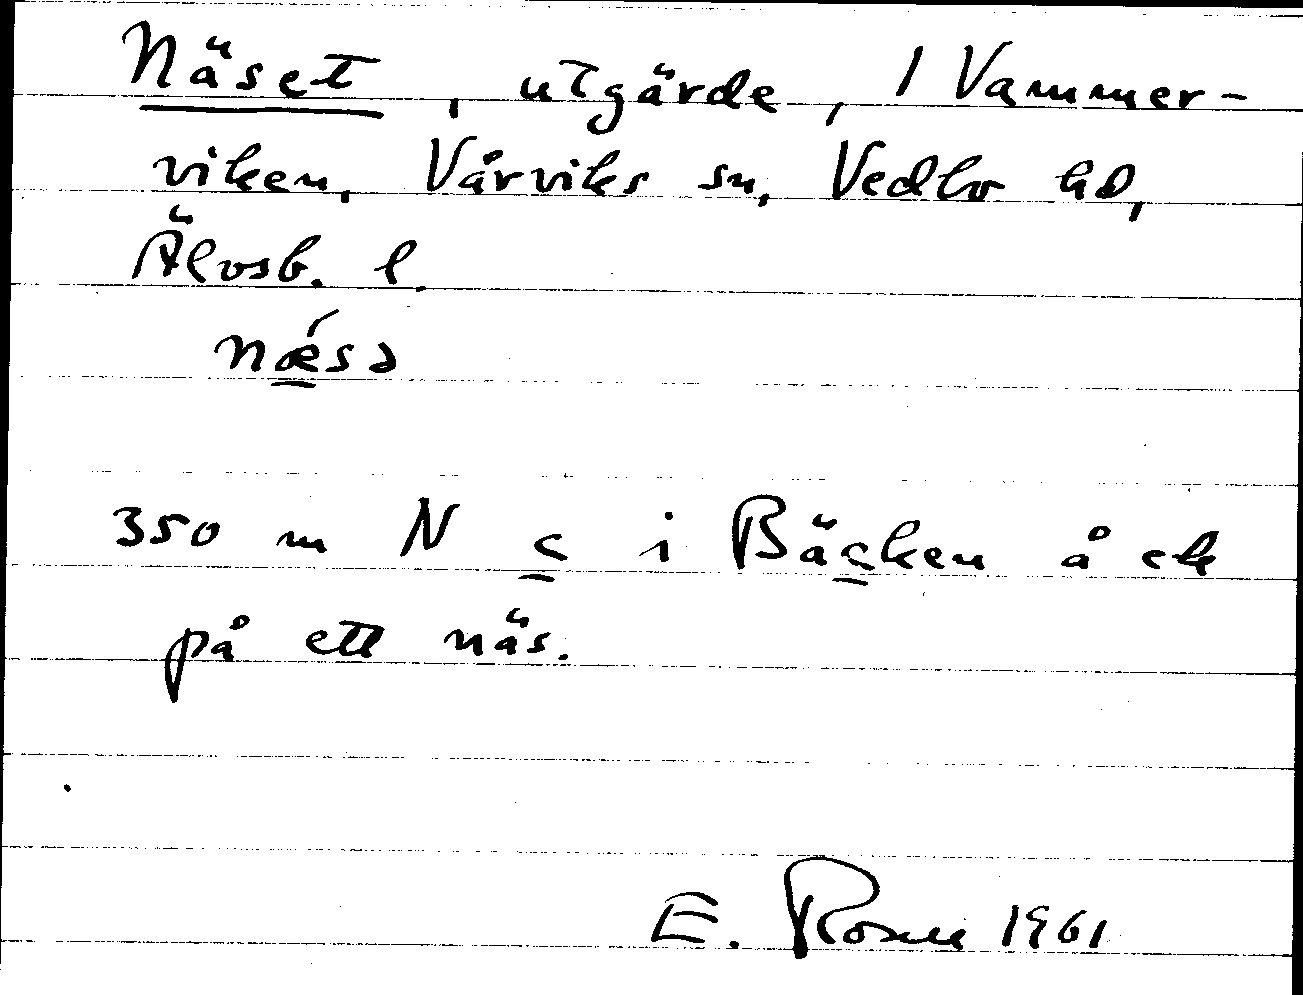 Näset, utgärde, 1 Vammer-
viken, Vårviks sn, Vedbo hd,
Älvsb. l.
nǽ̲sə
350 m N c̲ i Bäc̲ken å ek
på ett näs.
E. Rosell 1961